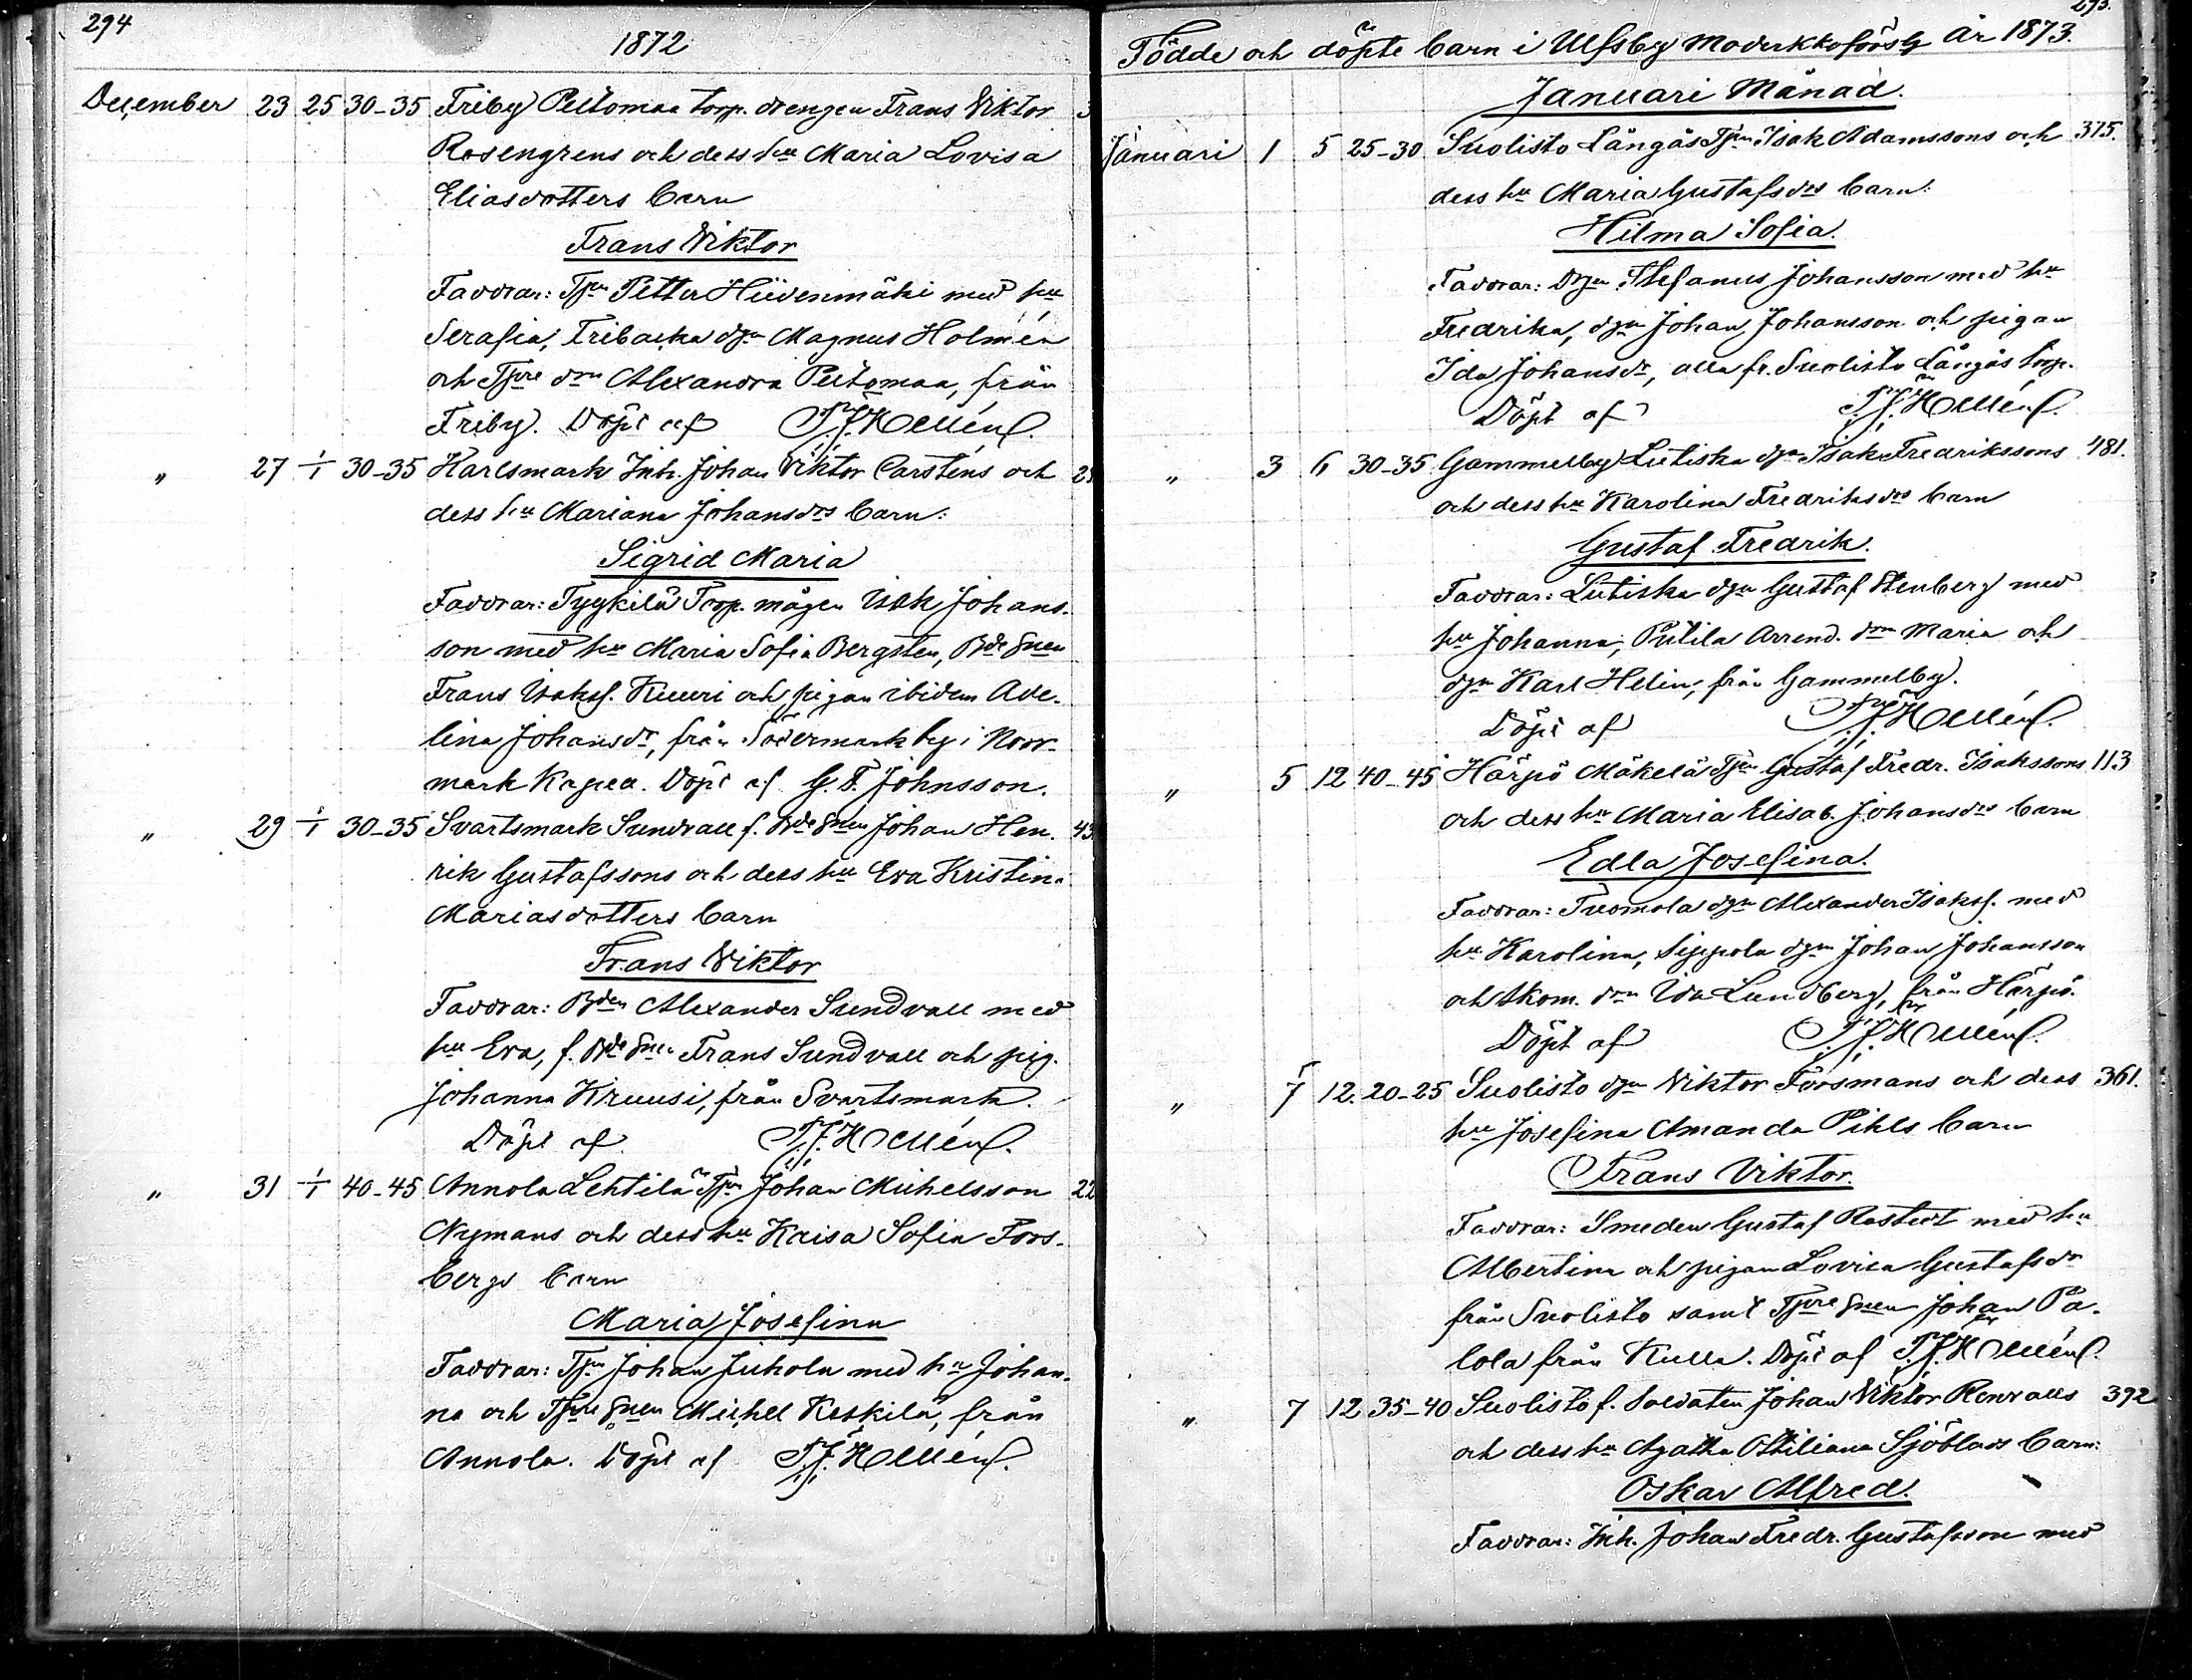 294
1872
December 23 25 30-35 Friby Peltomaa torp. drengen Frans Viktor 3
Rosengrens och dess hu Maria Lovisa
Eliasdotters barn
Frans Viktor
Faddrar: Tpn Petter Hiidenmäki med hu
Serafia, Fribacka dgn Magnus Holmén
och Tpre drn Alexandra Peltomaa, från
Friby. Döpt af T.J. Hellén.
" 27 1/1 30-35 Karlsmark Inh. Johan Viktor Carsténs och
dess hu Mariana Johansdrs barn:
Sigrid Maria
Faddrar: Tyykilä Torp. mågen Isak Johans-
son med hu Maria Sofia Bergsten, Bde Snen
Frans Isakss. Kuuri och pigan ibidem Ade-
lina Johansdr, från Södermark by i Norr-
mark Kapell. Döpt af G. F. Johnsson.
" 29 1/1 30-35 Svartsmark Sundvall f. Bde Snen Johan Hen- 43
rik Gustafssons och dess hu Eva Kristina
Mariasdotters barn
Frans Viktor
Faddrar: Bden Alexander Sundvall med
hu Eva, f. Bde Snen Frans Sundvall och pig.
Johanna Kruusi, från Svartsmark.
Döpt af T.J. Hellén.
" 31 1/1 40-45 Annola Lehtilä Tpn Johan Michelsson 22
Nymans och dess hu Kaisa Sofia Fors-
bergs barn
Maria Josefina
Faddrar: Tpn Johan Juhola med hu Johan-
na och Tpre Snen Michel Keskilä, från
Annola. Döpt af T.J. Hellén.
295.
Födde och döpte barn i Ulfsby Moderkkoförs:g År 1873.
Januari Månad.
Januari 1 5 25-30 Suolisto Långås Tpn Isak Adamssons och 375.
dess hu Maria Gustafsdrs barn:
Hilma Sofia.
Faddrar: Dgn Stefanus Johansson med hu
Fredrika, dgn Johan Johansson och pigan
Ida Johansdr, alla fr. Suolisto Långås torp.
Döpt af T.J. Hellén.
" 3 6 30-35 Gammelby Lutiska dgn Isak Fredrikssons 481.
och dess hu Karolina Fredriksdrs barn
Gustaf Fredrik.
Faddrar: Lutiska dgn Gustaf Stenberg med
hu Johanna, Putila Arrend. drn Maria och
dgn Karl Helin, från Gammelby.
Döpt af T.J. Hellén.
" 5 12 40-45 Härpö Mäkelä Tpn Gustaf Fredr. Isakssons 113
och dess hu Maria Elisab. Johansdrs barn
Edla Josefina.
Faddrar: Tuomola dgn Alexander Isakss. med
hu Karolina, Sippola dgn Johan Johansson
och Skom. drn Ida Lundberg, från Härpö.
Döpt af T.J. Hellén.
" 7 12. 20-25 Suolisto dgn Viktor Forsmans och dess 361.
hu Josefina Amanda Pihls barn
Frans Viktor.
Faddrar: Smeden Gustaf Rostedt med hu
Albertina och pigan Lovisa Gustafsdr
från Suolisto samt Tpre Snen Johan Pa-
lola från Kulla. Döpt af T.J. Hellén.
" 7 12 35-40 Suolisto f. Soldaten Johan Viktor Renvalls 392
och dess hu Agatha Ottiliana Sjöblads barn:
Oskar Alfred.
Faddrar: Inh. Johan Fredr. Gustafsson med